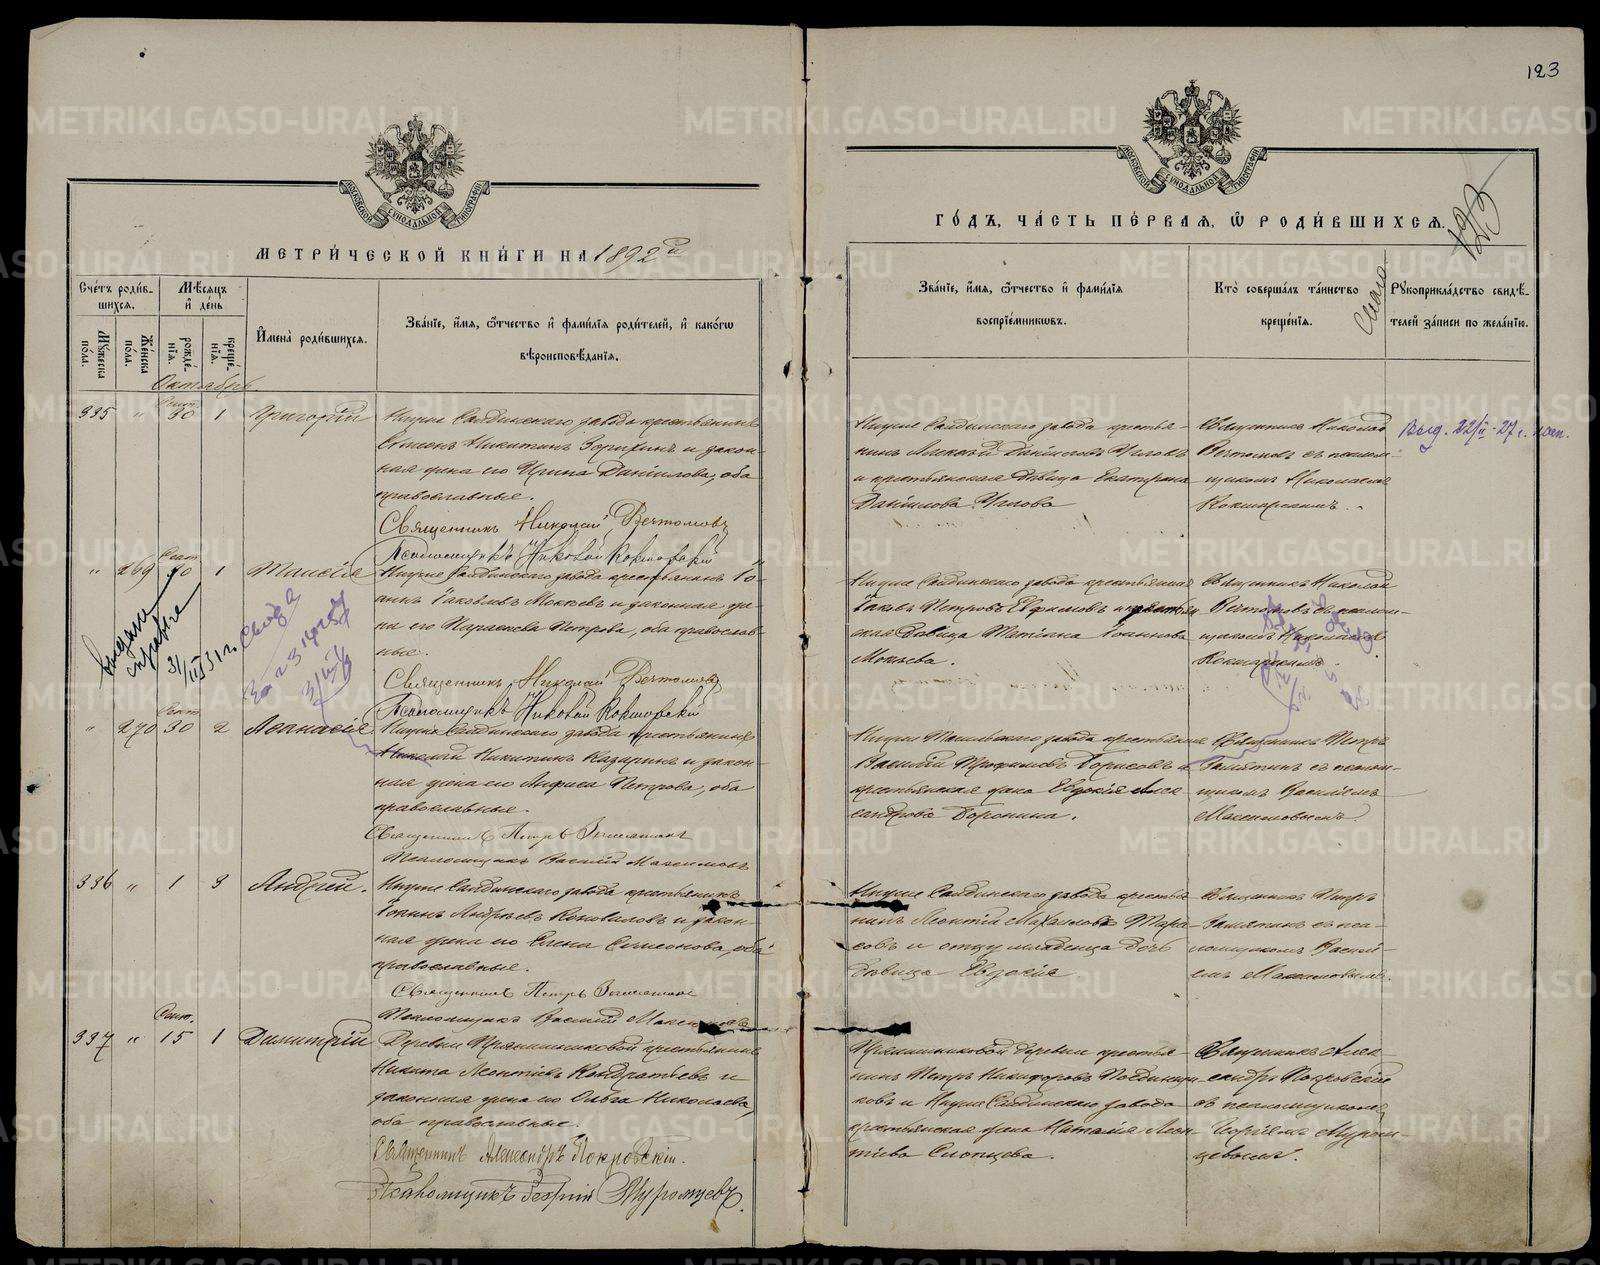 123
123
МЕТРИ́ЧЕСКОЙ КНИ́ГИ НА 1892й
ГО́ДЪ, ЧА́СТЬ ПЕ́РВАЯ, Ѡ҆ РОДИ́ВШИХСЯ.
МОСКОВСКОЙ СѴНОДАЛЬНОЙ ТИПОГРАФІИ
МОСКОВСКОЙ СѴНОДАЛЬНОЙ ТИПОГРАФІИ
Сче́тъ роди́вшихся.
Мꙋ́жеска по́ла.
Же́нска по́ла.
Мѣ́сяцъ и҆ де́нь
рожде́нїя.
креще́нїя.
И҆мена̀ роди́вшихся.
Зва́нїе, и҆́мя, ѻ҆́тчество и҆ фами́лїя роди́телей, и҆ како́гѡ
вѣроисповѣ́данїя.
Зва́нїе, и҆́мя, ѻ҆́тчество и҆ фами́лїя
воспрїе́мникѡвъ.
Кто̀ соверша́лъ та́инство
креще́нїя.
Рꙋкоприкла́дство свидѣ́-
телей за́писи по жела́нїю.
Октябрь.
335 " Сент. 30 1 Григорій
Нижне Салдинскаго завода крестьянинъ
Симеонъ Никитинъ Зорихинъ и закон-
ная жена его Ирина Даніилова, оба
православные.
Священникъ Николай Вечтомовъ
Псаломщикъ Николай Кокшарскій
Нижне Салдинскаго завода крестья-
нинъ Алексѣй Даніиловъ Углевъ
и крестьянская дѣвица Екатерина
Даніилова Углова
Священникъ Николай
Вечтомовъ съ псалом-
щикомъ Николаемъ
Кокшарскимъ.
Выд. 22/II-27 г.
" 269 Сент. 30 1 Таисія
Нижне Салдинскаго завода крестьянинъ Іо-
аннъ Іаковлевъ Мокѣевъ и законная же-
на его Параскева Петрова, оба православ-
ные.
Священникъ Николай Вечтомовъ
Псаломщикъ Николай Кокшарскій
Нижне Салдинскаго завода крестьянинъ
Іаковъ Петровъ Евфимовъ и крестьян-
ская дѣвица Татіана Іоаннова
Мокѣева.
Священникъ Николай
Вечтомовъ съ псалом-
щикомъ Николаемъ
Кокшарскимъ.
выдана
справка
31/III 31 г.
" 270 Сент. 30 2 Аѳанасія
Нижне Салдинскаго завода крестьянинъ
Николай Никитинъ Казаринъ и закон-
ная жена его Анфиса Петрова, оба
православные.
Священникъ Петръ Замятинъ
Псаломщикъ Василій Максимовъ
Нижне Тагильскаго завода крестьянинъ
Василій Трофимовъ Борисовъ и
крестьянская жена Евдокія Алек-
сандрова Воронина.
Священникъ Петръ
Замятинъ съ псалом-
щикомъ Василіемъ
Максимовымъ.
336 " 1 3 Андрей.
Нижне Салдинскаго завода крестьянинъ
Іоаннъ Андреевъ Коноваловъ и закон-
ная жена его Елена Симеонова, оба
православные.
Священникъ Петръ Замятинъ
Псаломщикъ Василій Максимовъ
Нижне Салдинскаго завода крестья-
нинъ Леонтій Тара-
совъ и отца младенца дочь
дѣвица Евдокія
Священникъ Петръ
Замятинъ съ пса-
ломщикомъ Василі-
емъ Максимовымъ.
337 " Сент. 15 1 Димитрій
Деревни Прянишниковой крестьянинъ
Никита Леонтіевъ Кондратьевъ и
законная жена его Ольга Николаева,
оба православные.
Священникъ Александръ Покровскій.
Псаломщикъ Георгій Муромцевъ.
Прянишниковой деревни крестья-
нинъ Петръ Никифоровъ
ковъ и Нижне Салдинскаго завода
крестьянская жена Наталія Леон-
тіева Слопцева.
Священникъ Алек-
сандръ Покровскій
съ псаломщикомъ
Георгіемъ Муром-
цевымъ.
METRIKI.GASO-URAL.RU